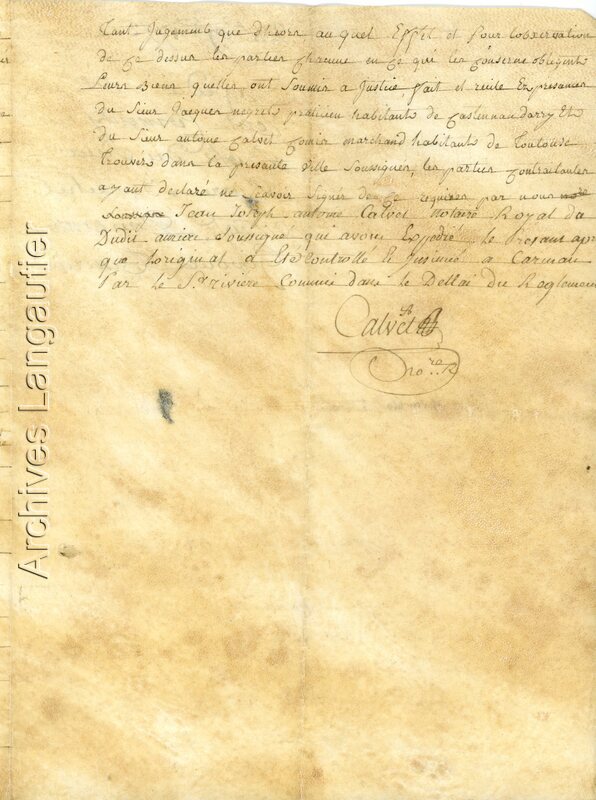 Tant Jugement que dhiors auquel Effet et Pour Lobxervation
de Ce dessus les parties chacune en ce qui les conserne obligent
Leurs Biens quelles ont Soumis a Justice, fait et recité En presances
du Sieur Jacques negret praticien habitants de Castelnaudarry Et
du Sieur antoine Calvet Commis marchand habitants de Toulouse
Trouvés dans la presante Ville Soussignes, les parties contraitantes
ayant declaré ne Scavoir Signer de ce requises par nous
Jean Joseph antoine Calvet Notaire Royal du
Dudit auriac Soussigne qui avons Expedié le Presant apr
que Loriginal a Eté Controllé et Insinué a Carman
Par le Sr riviere Commis dans le Dellai du Reglement
Calvet
nore R
Archives Langautier